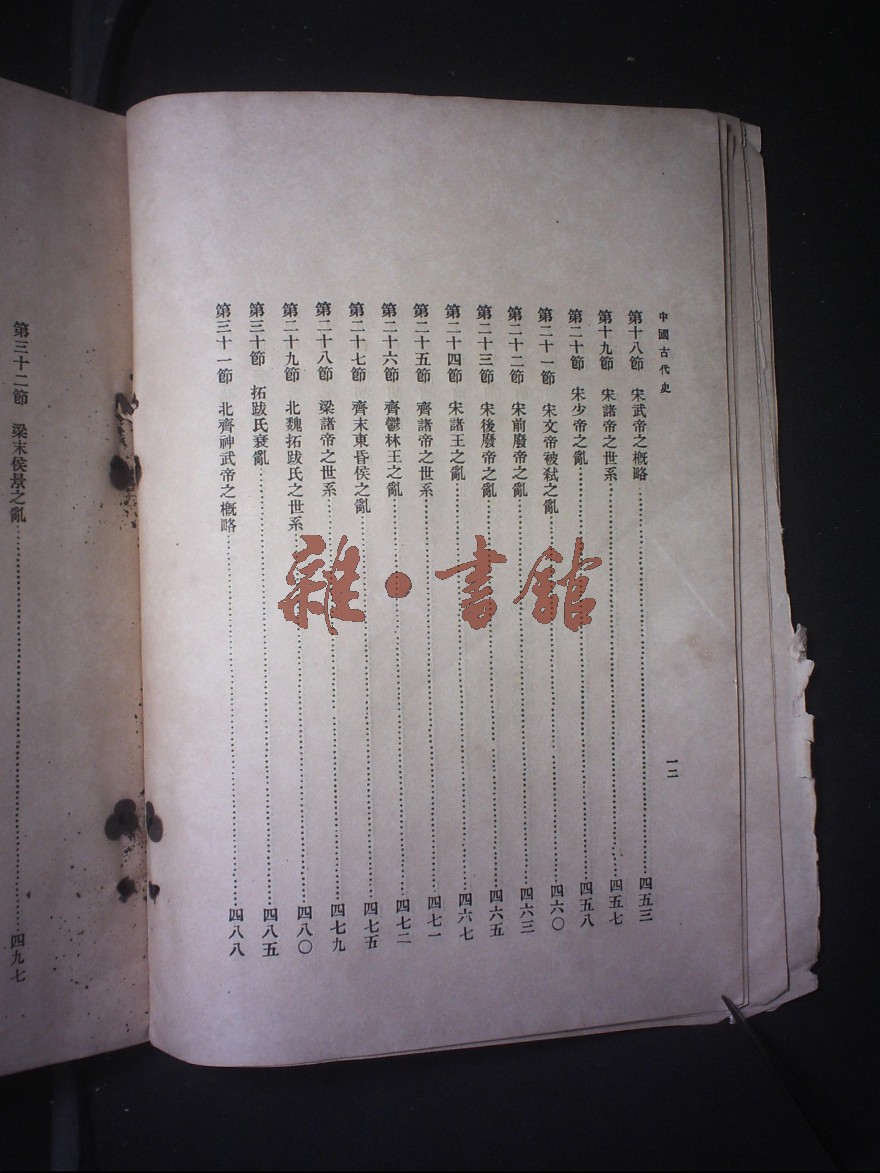 中國古代史
一二
第十八節 宋武帝之概略 四五三
第十九節 宋諸帝之世系 四五七
第二十節 宋少帝之亂 四五八
第二十一節 宋文帝被弒之亂 四六〇
第二十二節 宋前廢帝之亂 四六三
第二十三節 宋後廢帝之亂 四六五
第二十四節 宋諸王之亂 四六七
第二十五節 齊諸帝之世系 四七一
第二十六節 齊鬱林王之亂 四七二
第二十七節 齊末東昏侯之亂 四七五
第二十八節 梁諸帝之世系 四七九
第二十九節 北魏拓跋氏之世系 四八〇
第三十節 拓跋氏衰亂 四八五
第三十一節 北齊神武帝之概略 四八八
第三十二節 梁末侯景之亂 四九七
雜·書館